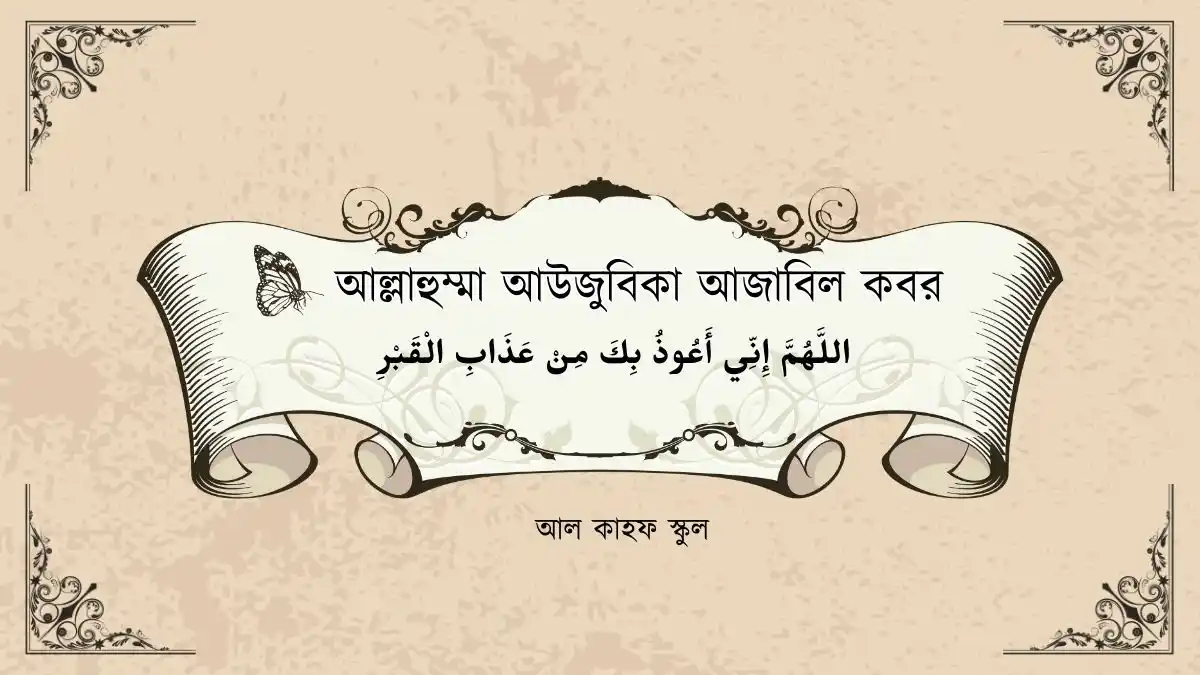 আল্লাহুম্মা আউজুবিকা আজাবিল কবর
اللَّهُمَّ إِنِّي أَعُوذُ بِكَ مِنْ عَذَابِ الْقَبْرِ
আল কাহফ স্কুল